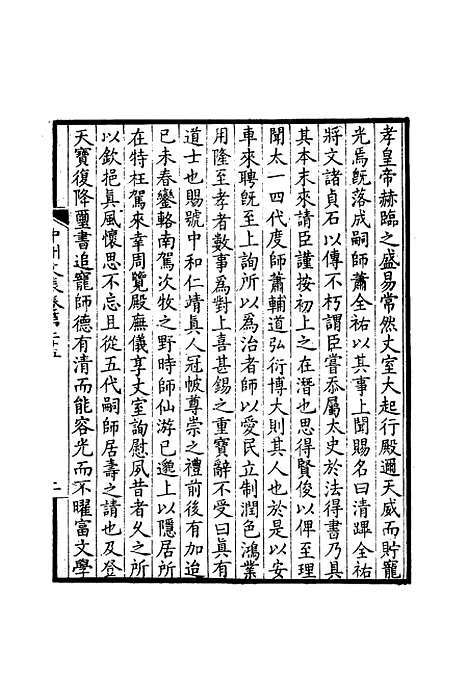 孝皇帝赫臨之盛易常然丈室大起行殿邇天威而貯寵
光焉旣落成嗣師蕭全祐以其事上聞賜名曰清蹕全祐
將文諸貞石以傳不朽謂臣嘗忝屬太史於法得書乃具
其本末來請臣謹按初上之在潛也思得賢俊以俾至理
聞太一四代度師蕭輔道弘衍博大則其人也於是以安
車來聘旣至上詢所以爲治者師以愛民立制潤色鴻業
用隆至孝者數事爲對上喜甚錫之重寶辭不受曰眞有
道士也賜號中和仁靖眞人冠帔尊崇之禮前後有加迨
已未春鑾輅南駕次牧之野時師仙游已邈上以隱居所
在特枉駕來幸周覽殿廡儀享丈室詢慰夙昔者乆之所
以欽挹眞風懷思不忘且從五代嗣師居壽之請也及登
天寶復降璽書追寵師德有清而能容光而不曜富文學
中州文表卷第二十五
二